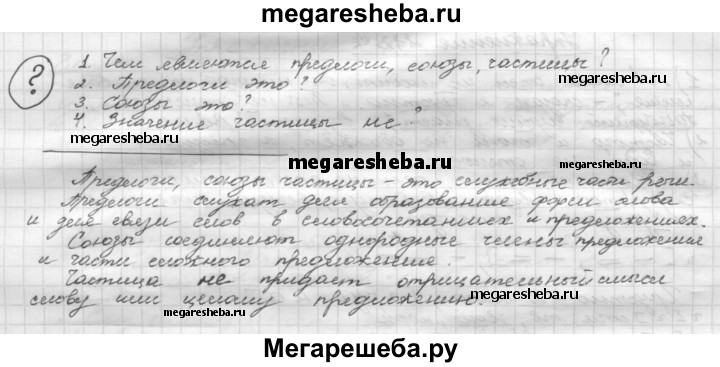 megaresheba.ru
?
1. Чем являются предлоги, союзы, частицы?
2. Предлоги это?
megaresheba.ru
3. Союзы это?
4. Значение частицы не?
megaresheba.ru
megaresheba.ru
megaresheba.ru
Предлоги, союзы частицы - это служебные части речи.
Предлоги служат для образование форм слова
и для связи слов в словосочетаниях и предложениях.
Союзы соединяют однородные члены предложение
и части сложного предложение.
Частица не придает отрицательный смысл
megaresheba.ru
megaresheba.ru
слову или целому предложению.
Мегарешеба.ру